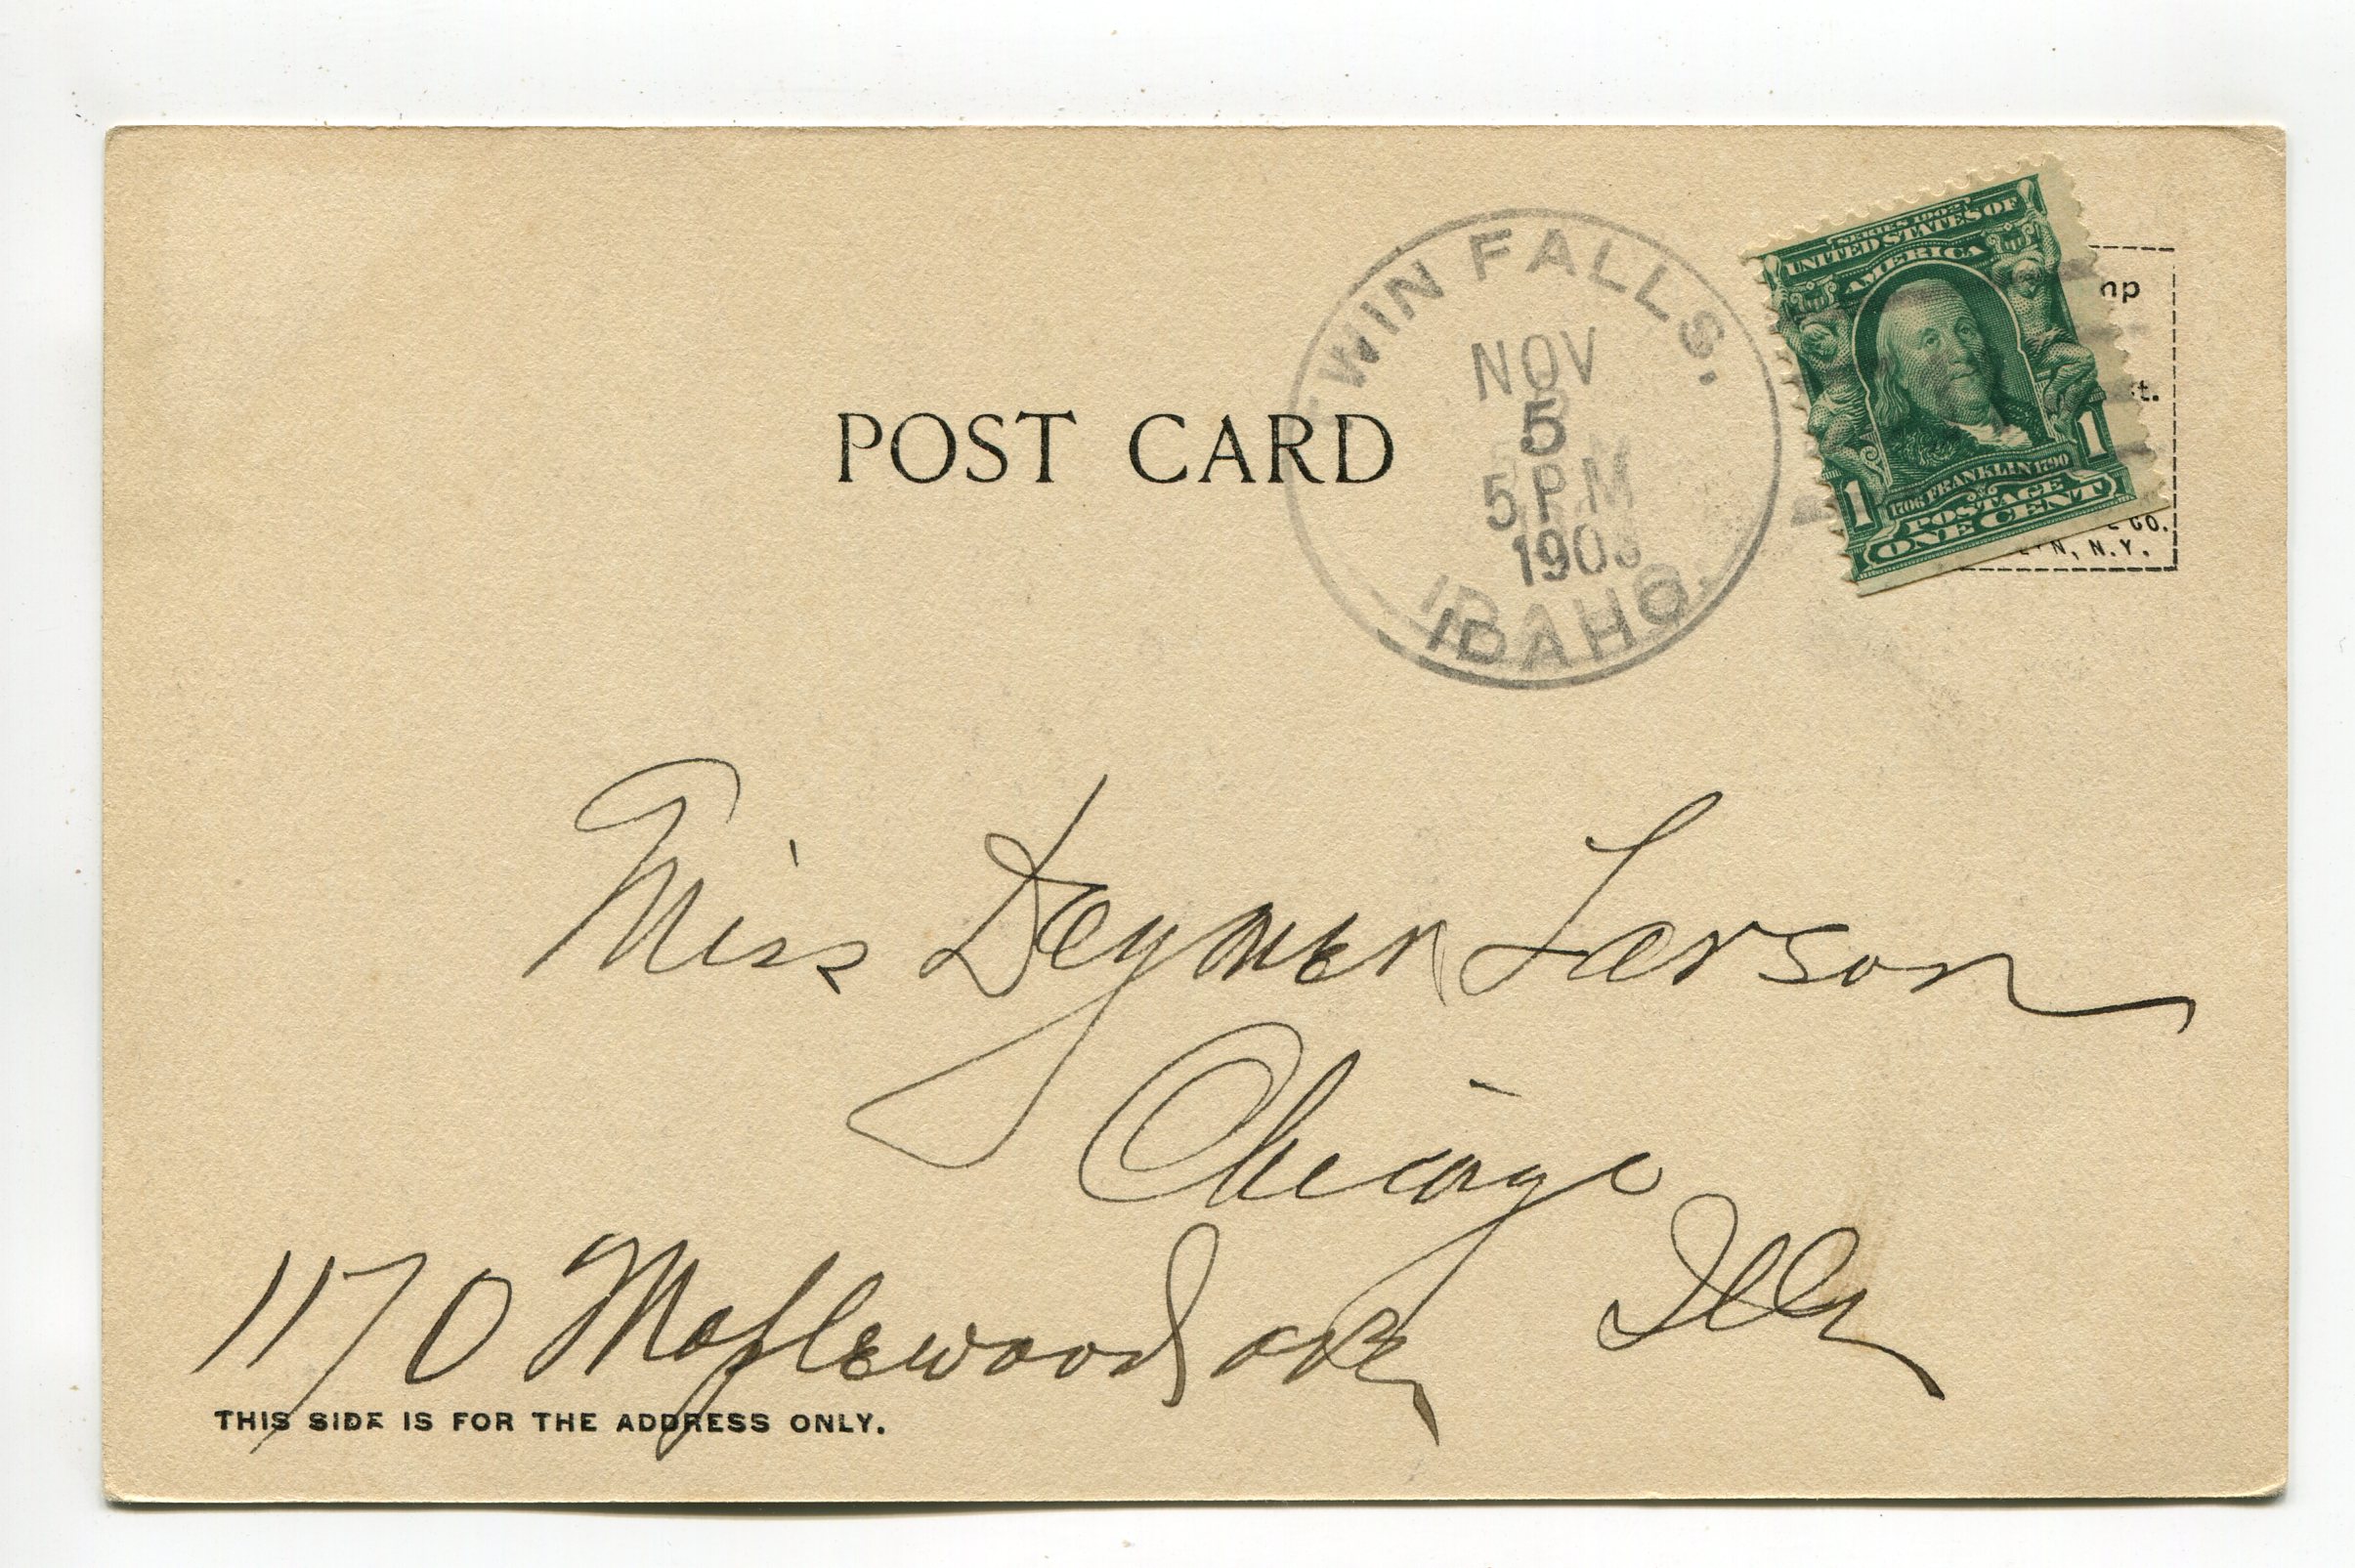 POST CARD
WIN FALLS.
NOV
5
5 PM
190
IDAHO.
SERIES 1902
UNITED STATES OF
AMERICA
1706 FRANKLIN 1790
1 1
POSTAGE
ONE CENT
mp
t.
CO.
N, N.Y.
Miss Larson
Chicago
Ills
1170 Maplewood ave
THIS SIDE IS FOR THE ADDRESS ONLY.